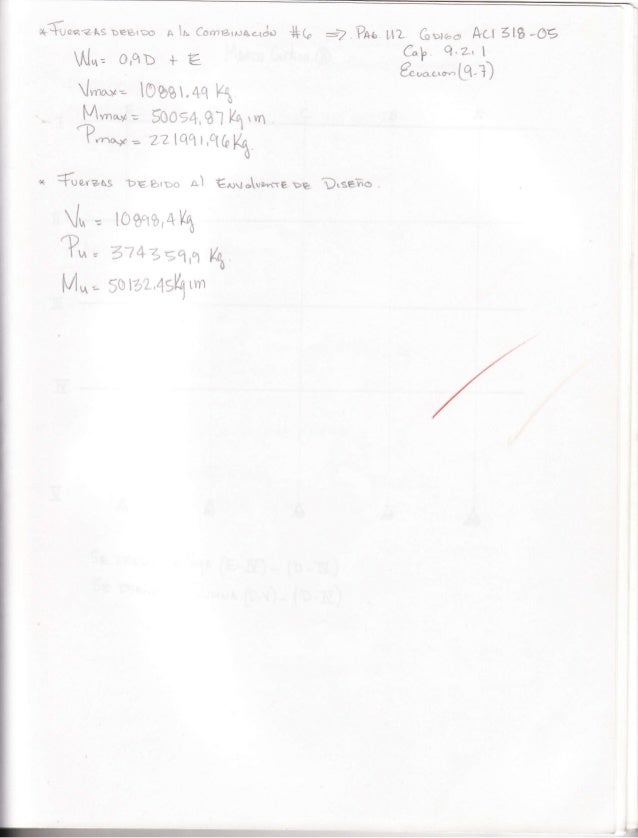 * Fuerzas debido a la Combinación #6 => Pag. 112 Codigo ACI 318-05
Cap. 9.2.1
Wu= 0,9D + E
Ecuacion (9-7)
Vmax= 10881.49 Kg
Mmax= 50054,87 Kg.m
Pmax= 221991,96 Kg.
* Fuerzas debido al Envolvente de Diseño.
Vu = 10898,4 Kg
Pu = 374359,9 Kg.
Mu= 50132.45 Kg.m
(E-IV)-(D-IV)
(D-V)-(D-IV)